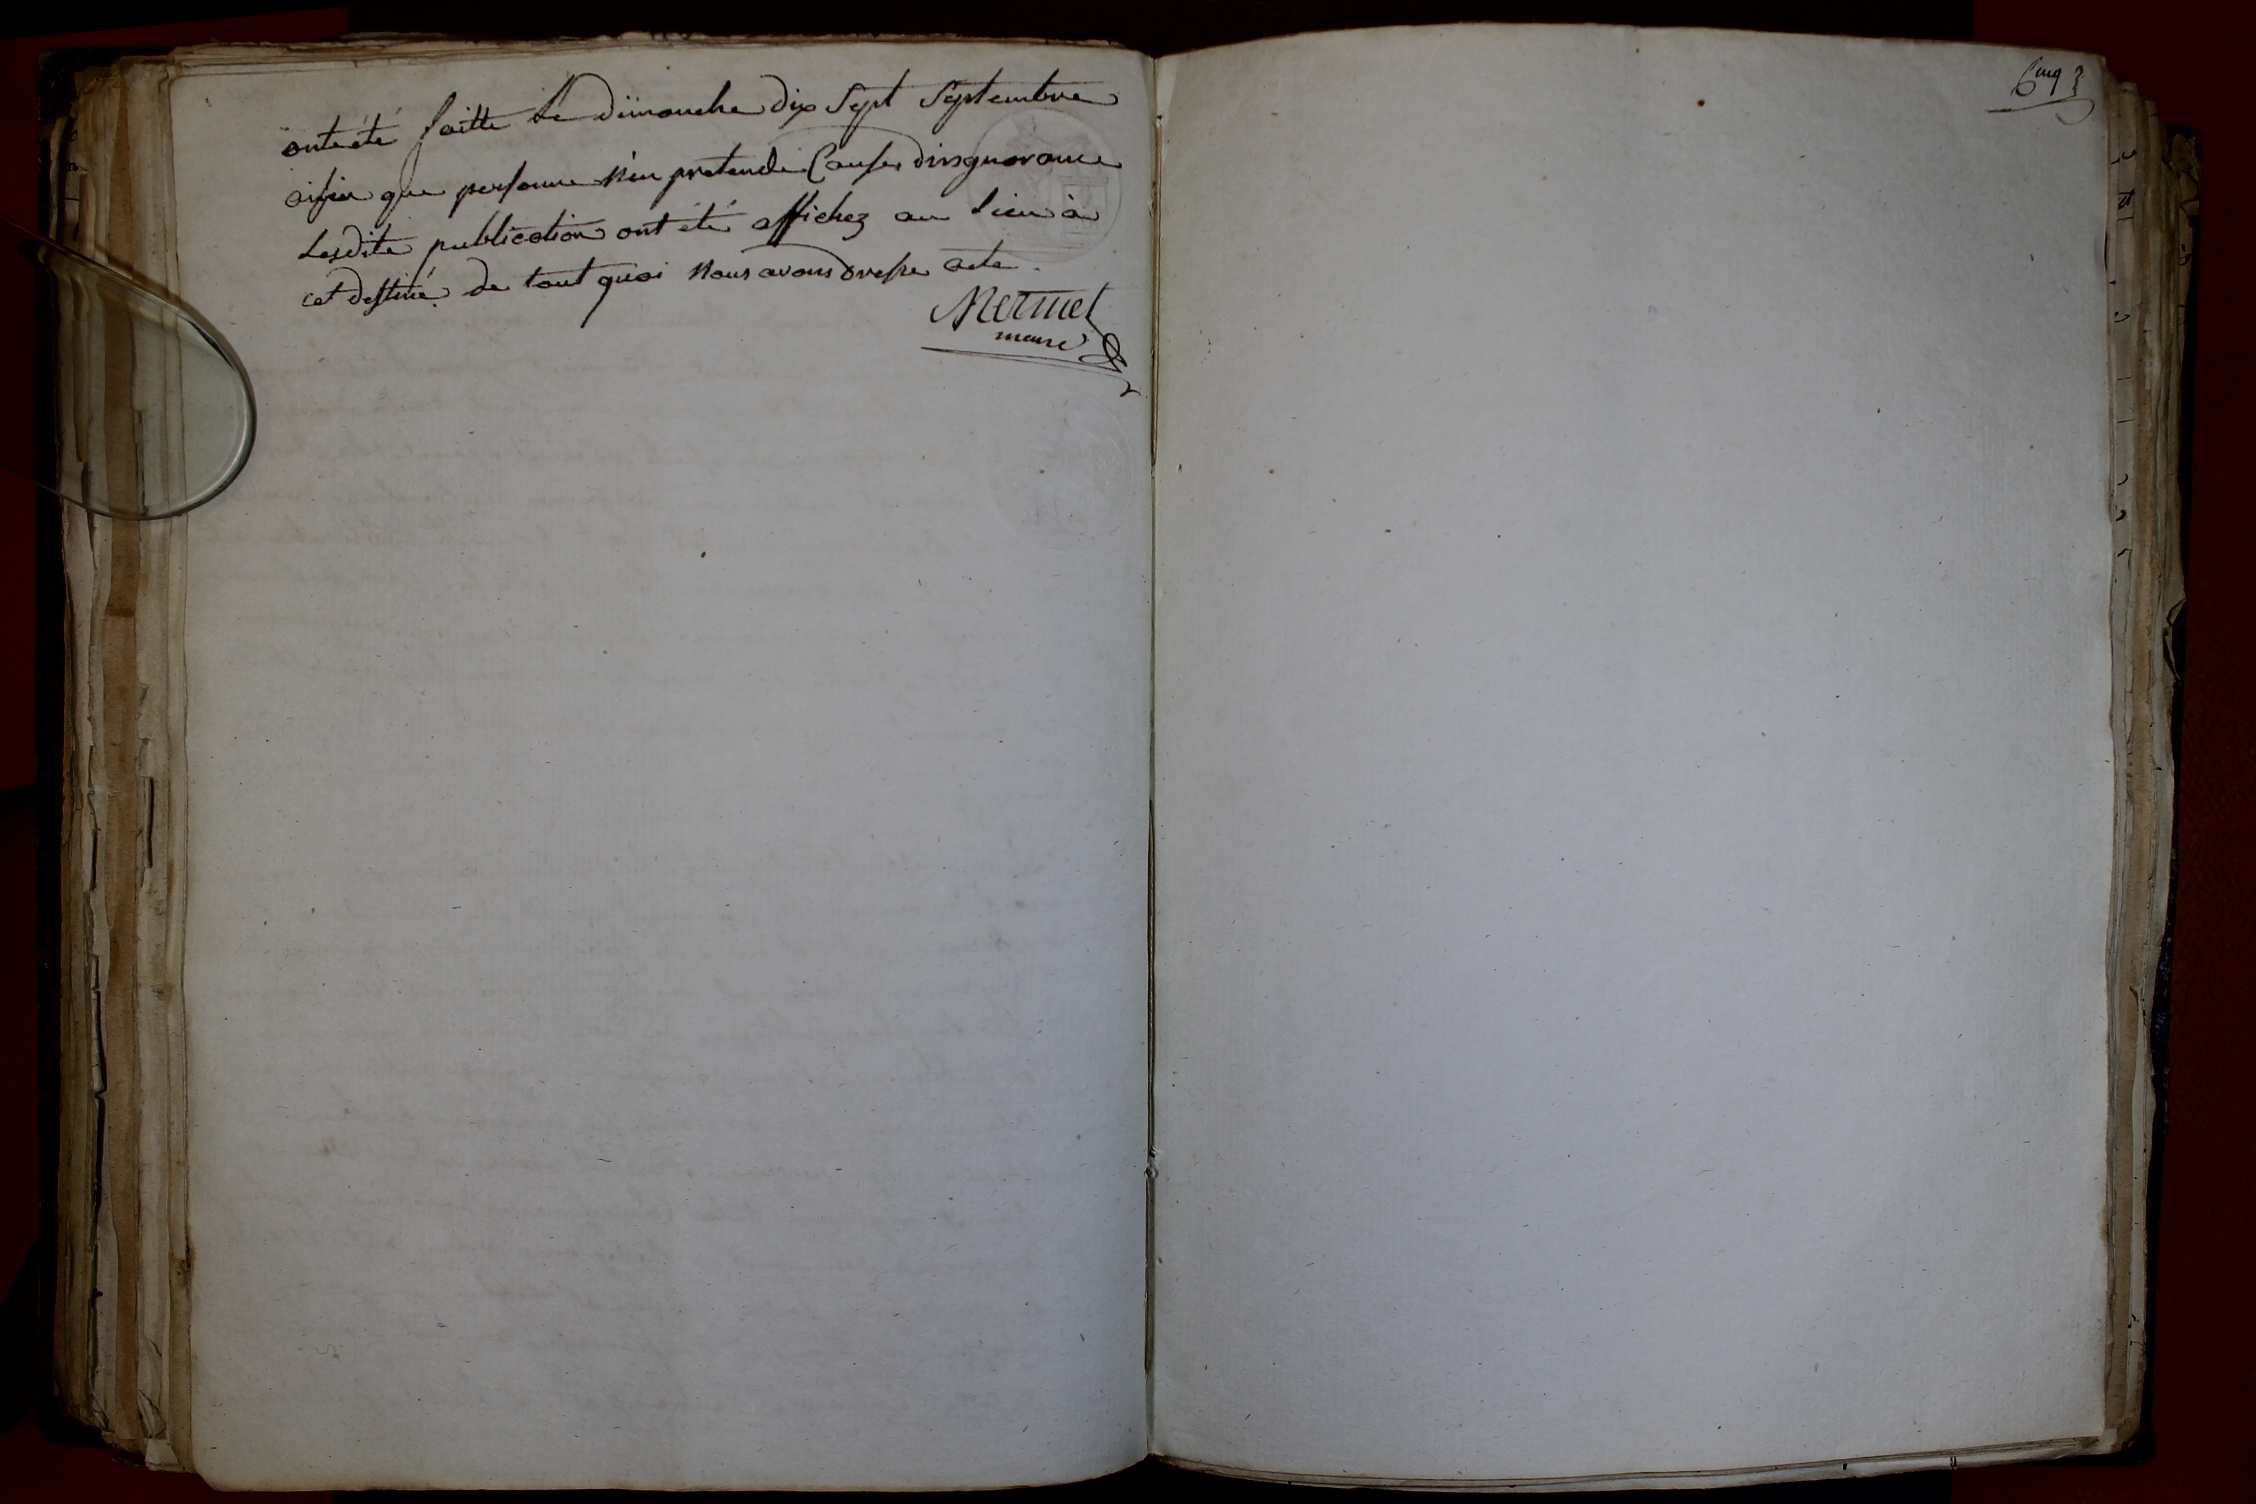 ont été faitte le dimanche dix sept Septembre
aifin que personne n'en pretende Cause dinsgnorance
Lesdite publication ont été affichez au lieu à
cet destiné. de tout quoi nous avons dresse acte.
Mermet
maire